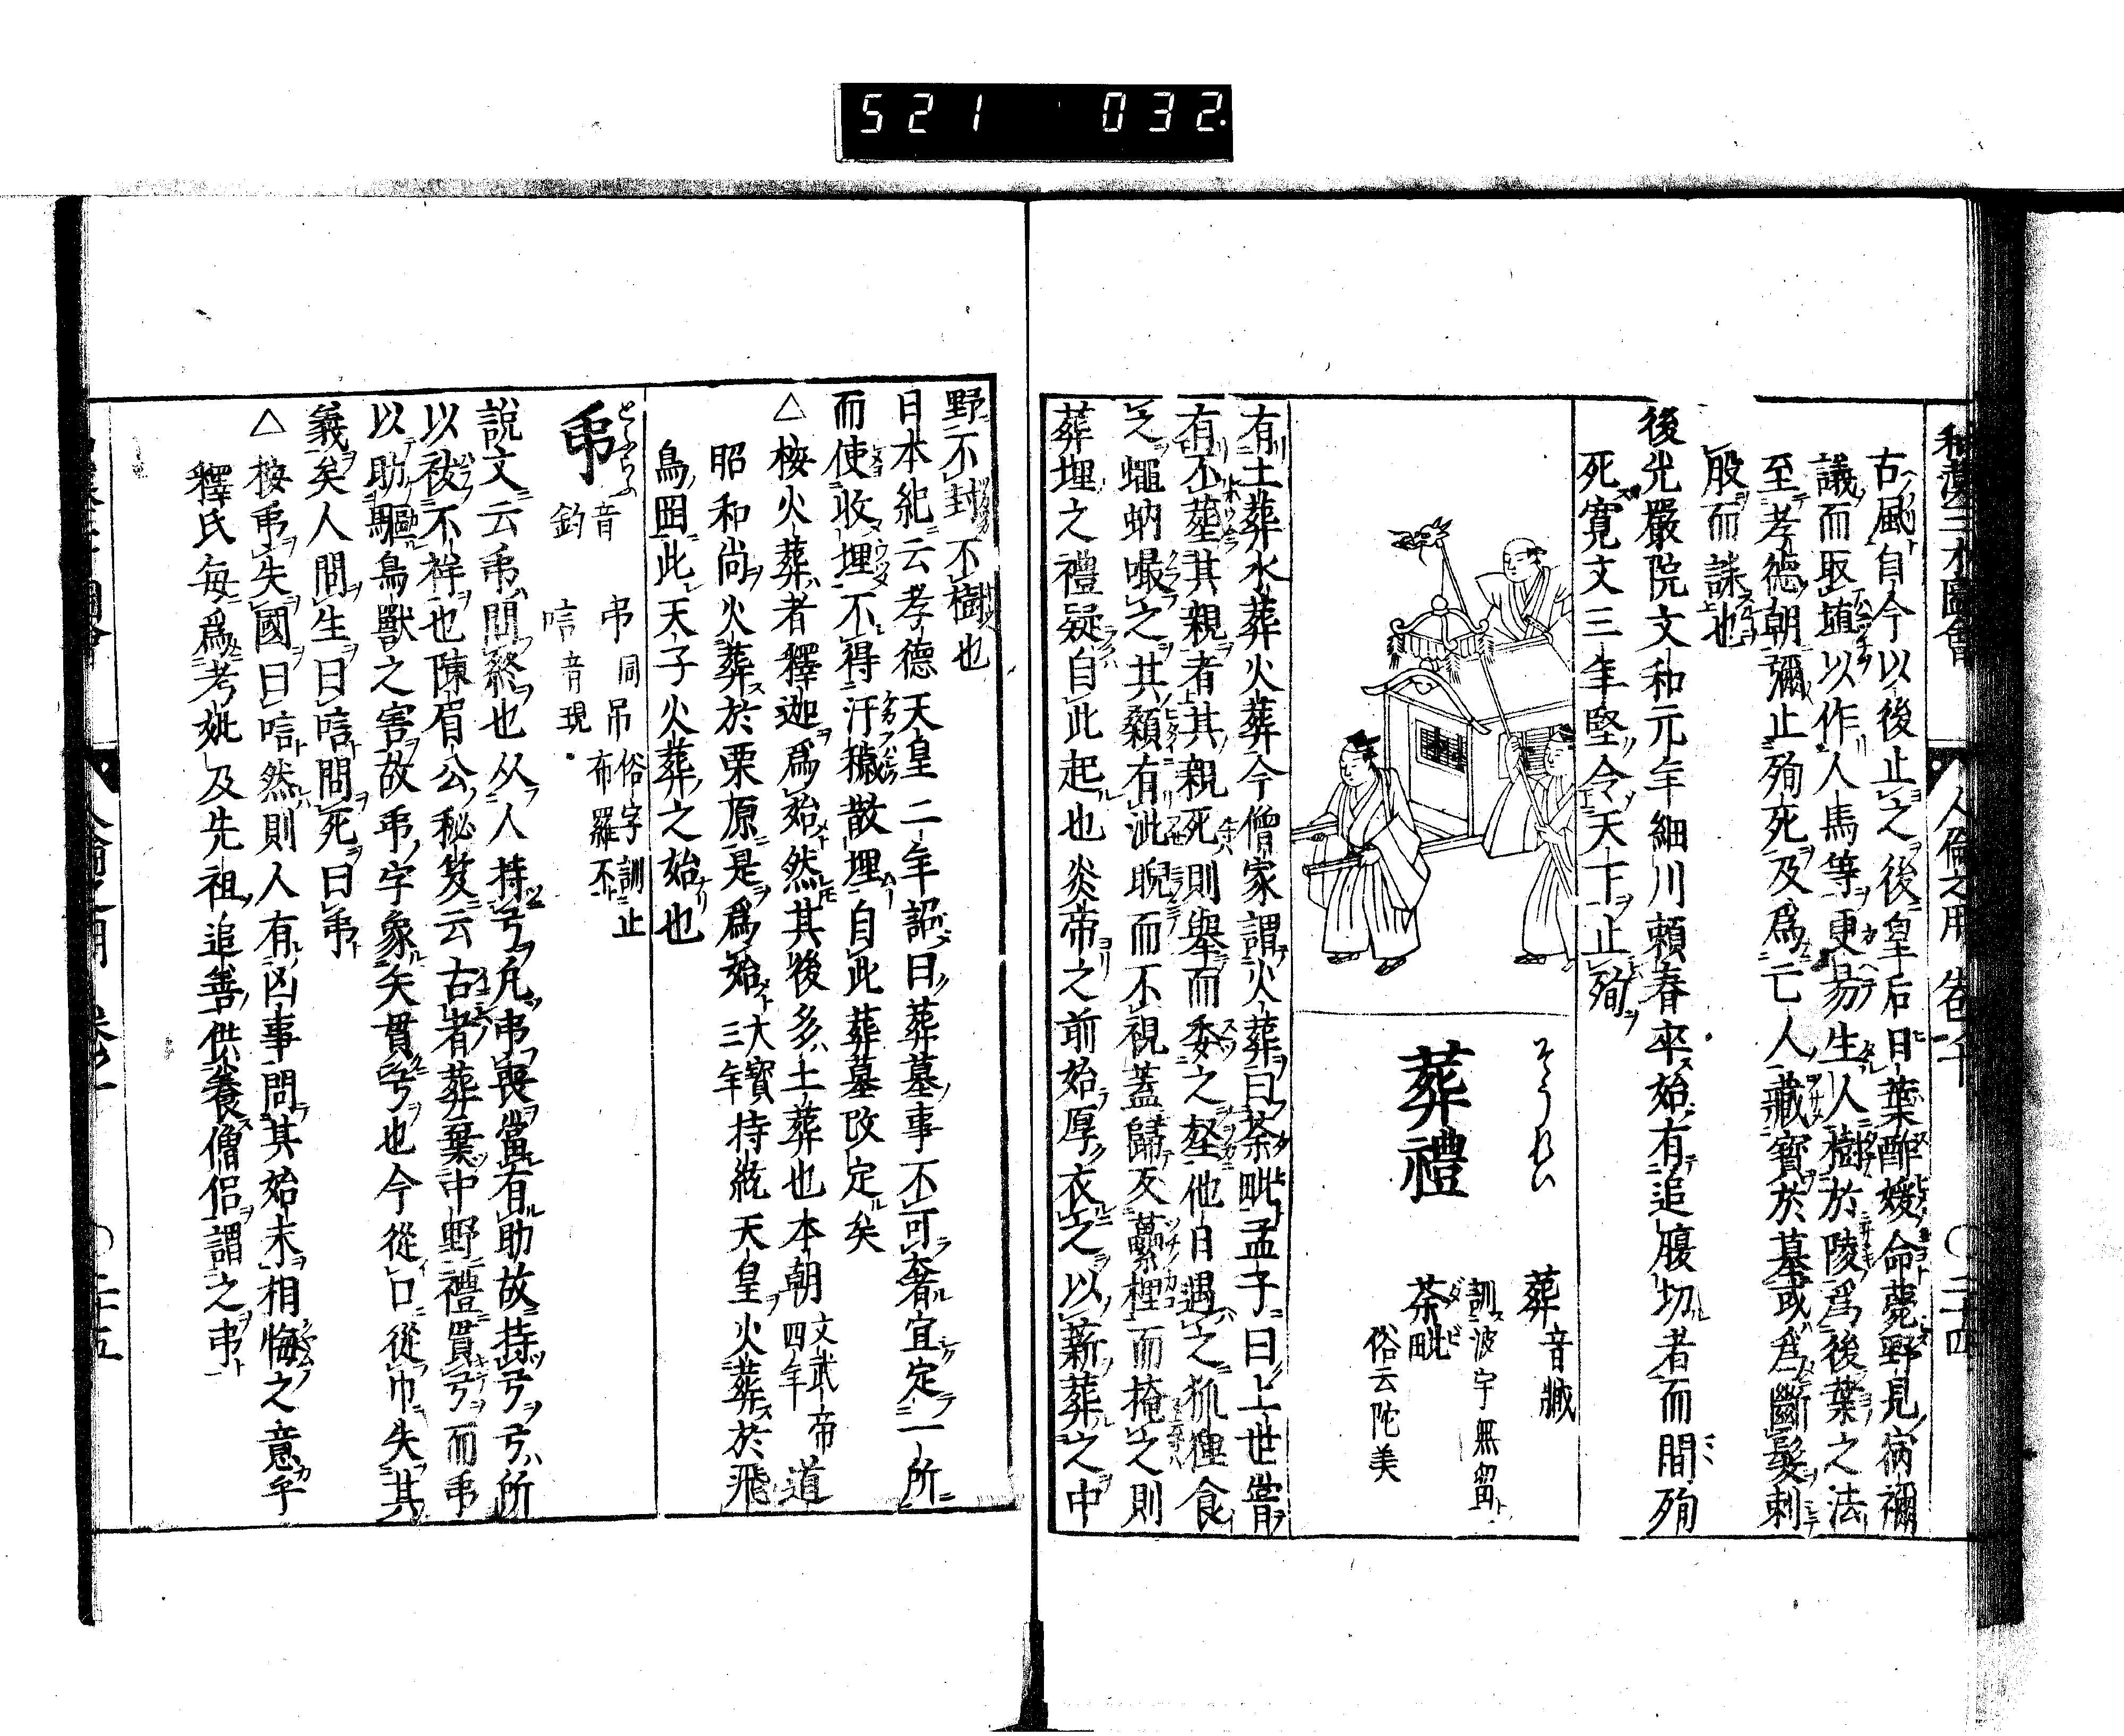 521 032
和漢三才圖會 人倫之用 卷十 〇二十四
古風自今以後止之後皇后日葉酢媛命薨野見宿禰
議而取埴以作人馬等更易生人樹於陵爲後葉之法
至孝德朝彌止殉死及爲亡人藏寶於墓或爲斷髮刺
股而誄也
後光嚴院文和元年細川頼春卒始有追腹切者而間殉
死寛文三年堅令天下止殉
そうれい
葬禮
葬音臓
訓波宇無留
荼毗
俗云陀美
有土葬水葬火葬今僧家謂火葬曰荼毗孟子曰上世嘗
有不葬其親者其親死則舉而委之壑他日過之狐狸食
之蠅蚋嘬之其顙有泚睨而不視蓋歸反虆梩而掩之則
葬埋之禮疑自此起也炎帝之前始厚衣之以薪葬之中
野不封不樹也
日本紀云孝德天皇二年詔曰葬墓事不可奢宜定一所
而使收埋不得汙穢散埋自此葬墓改定矣
△按火葬者釋迦爲始然其後多土葬也本朝文武帝四年道
昭和尚火葬於栗原是爲始大寶三年持統天皇火葬於飛
鳥岡此天子火葬之始也
とふらふ
弔
音釣
弔同吊俗字訓止布羅不
唁音現
說文云弔問終也从人持弓凡弔喪當有助故持弓弓所
以祓不祥也陳眉公秘笈云古者葬棄中野禮貫弓而弔
以助驅鳥獸之害故弔字象矢貫弓也今從口從巾失其
義矣人問生曰唁問死曰弔
△按弔失國曰唁然則人有凶事問其始末相悔之意乎
釋氏毎爲考妣及先祖追善供養僧侶謂之弔
〇二十五